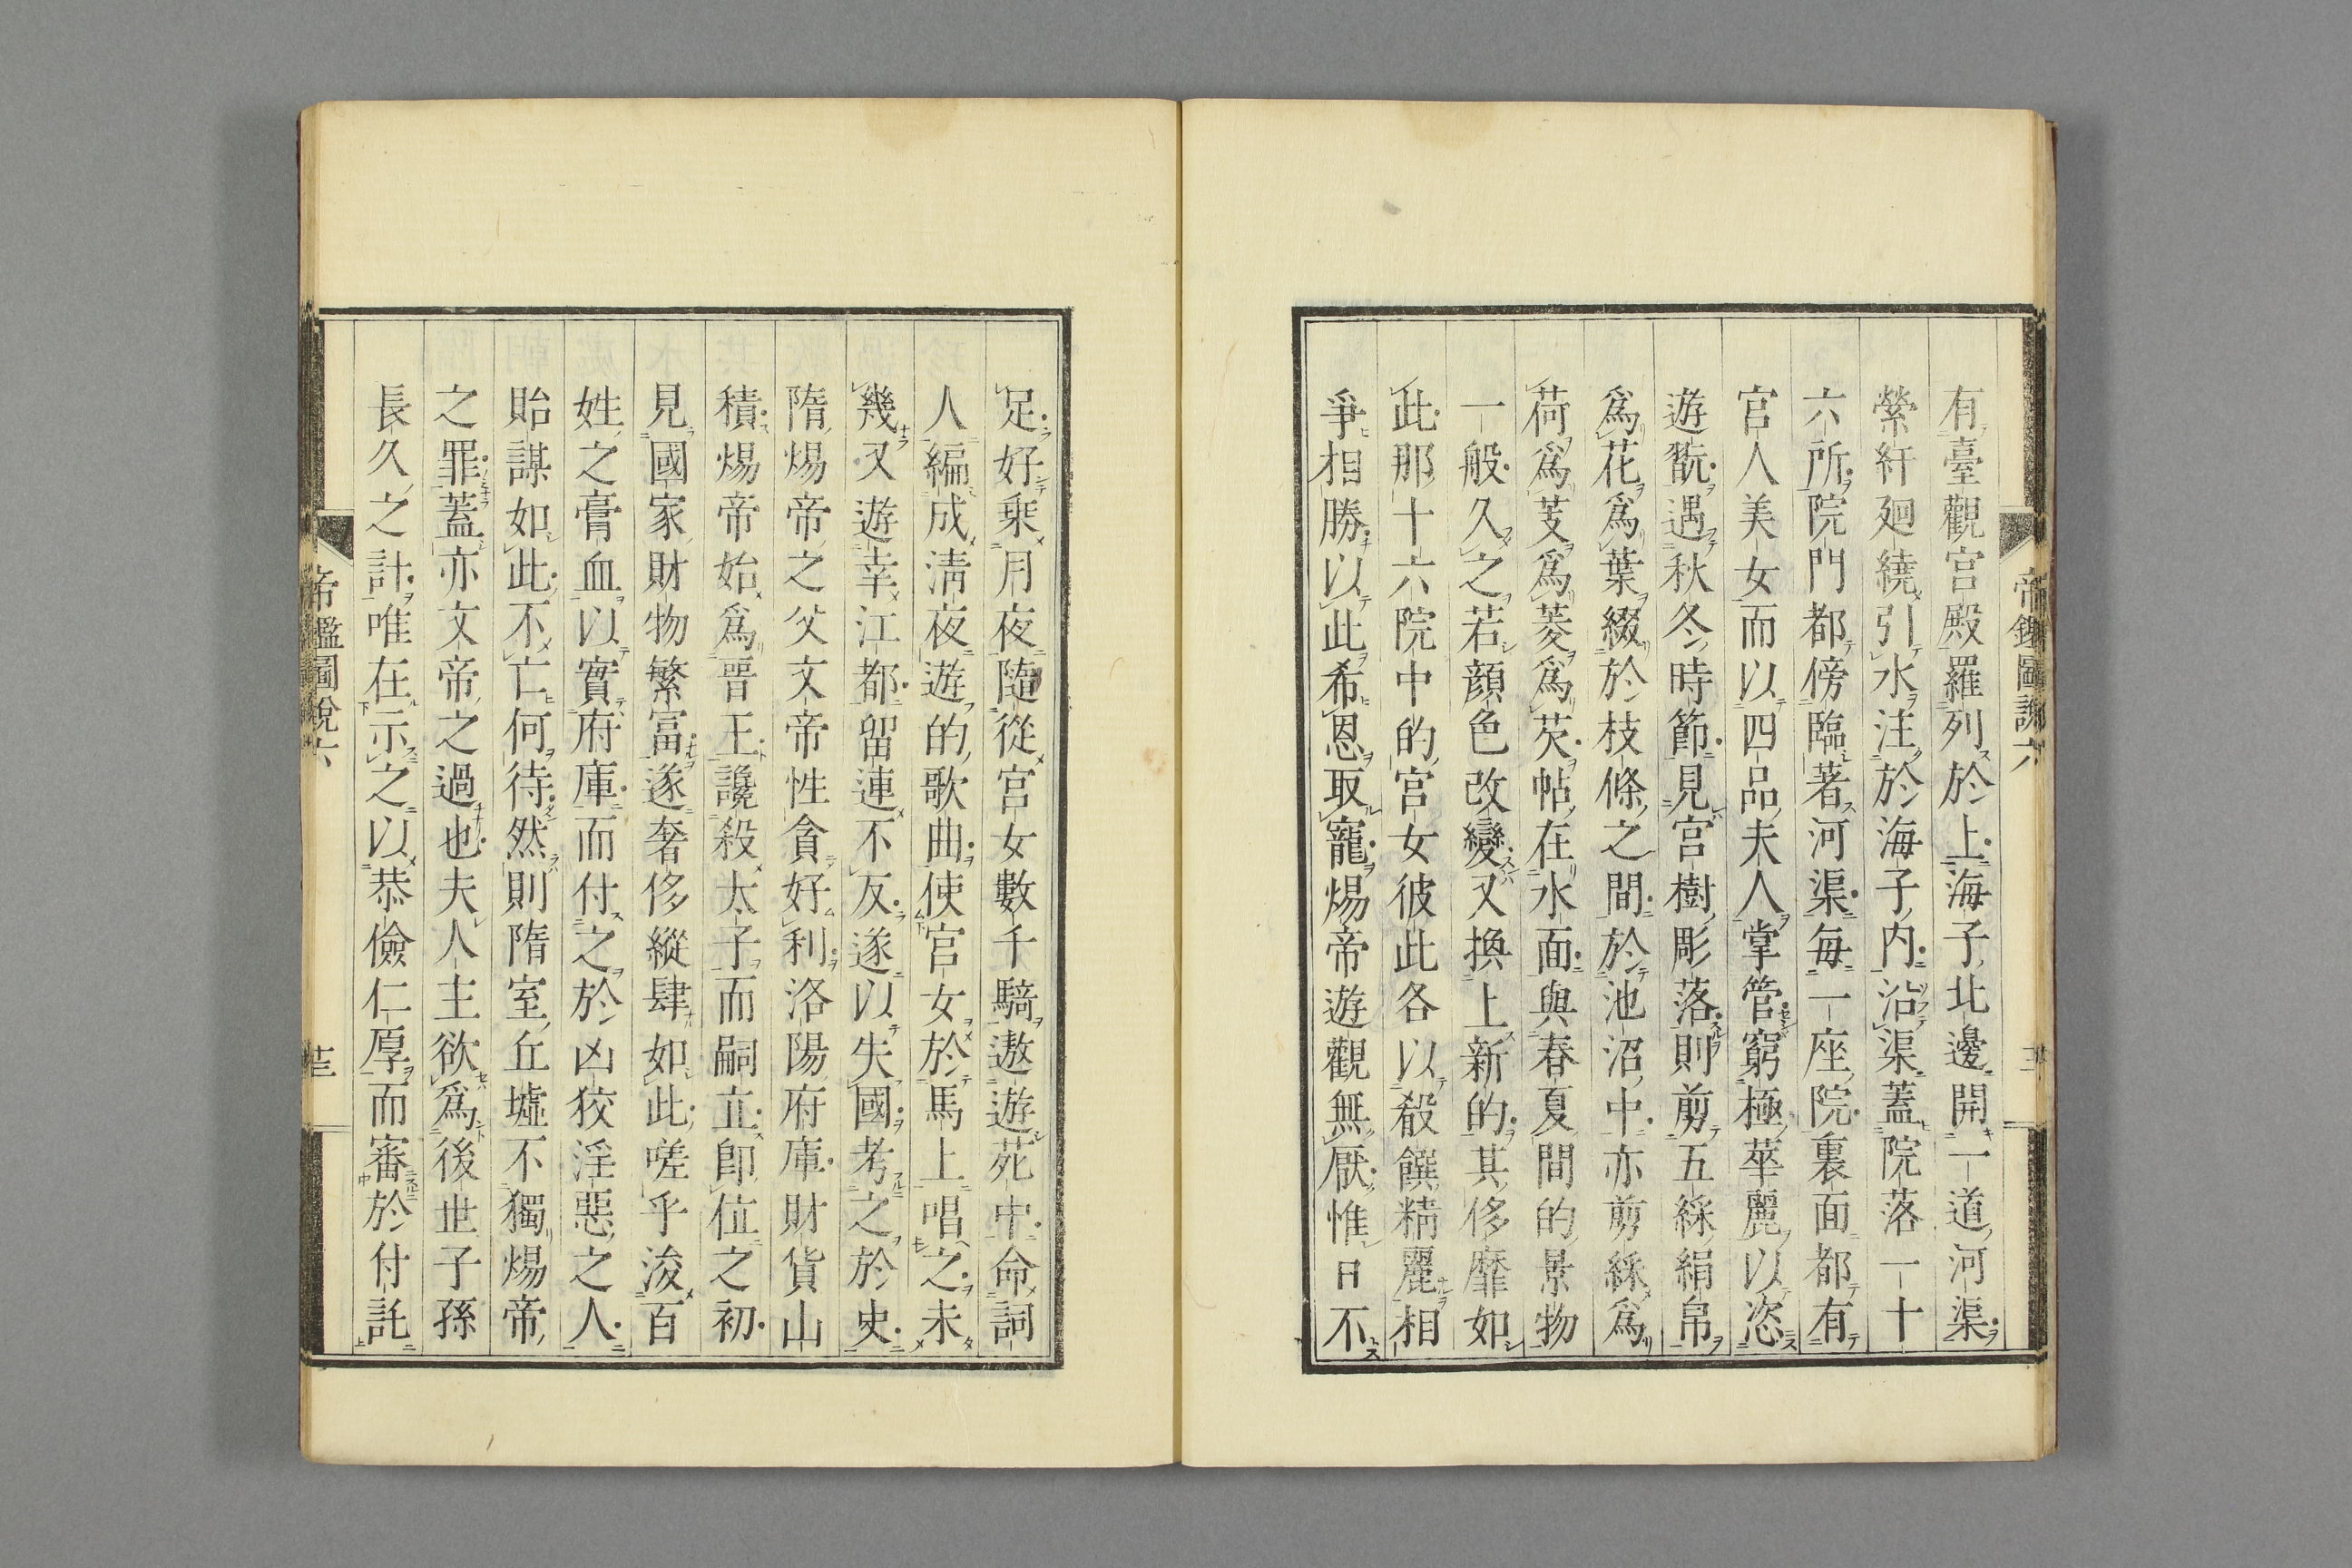 有臺觀宮殿羅列於上海子北邊開一道河渠
縈紆廻繞引水注於海子內沿渠蓋院落一十
六所院門都傍臨著河渠每一座院裏面都有
宮人美女而以四品夫人掌管窮極華麗以恣
遊翫遇秋冬時節見宮樹彫落則剪五綵絹帛
爲花爲葉綴於枝條之間於池沼中亦剪綵爲
荷爲芰爲菱爲芡帖在水面與春夏間的景物
一般久之若顔色改變又換上新的其侈靡如
此那十六院中的宮女彼此各以殽饌精麗相
爭相勝以此希恩取寵煬帝遊觀無厭惟日不
足好乘月夜隨從宮女數千騎遨遊苑中命詞
人編成淸夜遊的歌曲使宮女於馬上唱之未
幾又遊幸江都留連不反遂以失國考之於史
隋煬帝之父文帝性貪好利洛陽府庫財貨山
積煬帝始爲晉王讒殺太子而嗣立卽位之初
見國家財物繁富遂奢侈縱肆如此嗟乎浚百
姓之膏血以實府庫而付之於凶狡淫惡之人
貽謀如此不亡何待然則隋室丘墟不獨煬帝
之罪蓋亦文帝之過也夫人主欲爲後世子孫
長久之計唯在示之以恭儉仁厚而審於付託
帝鑑圖說六